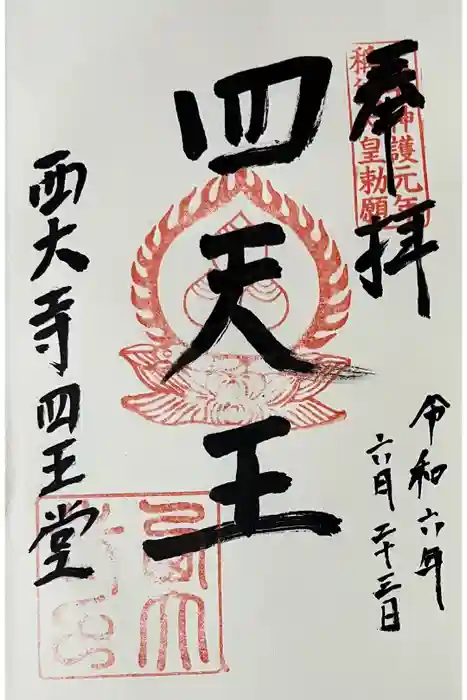 奉拝
神護元年
皇勅願
令和六年
六月二十三日
四天王
西大寺四王堂